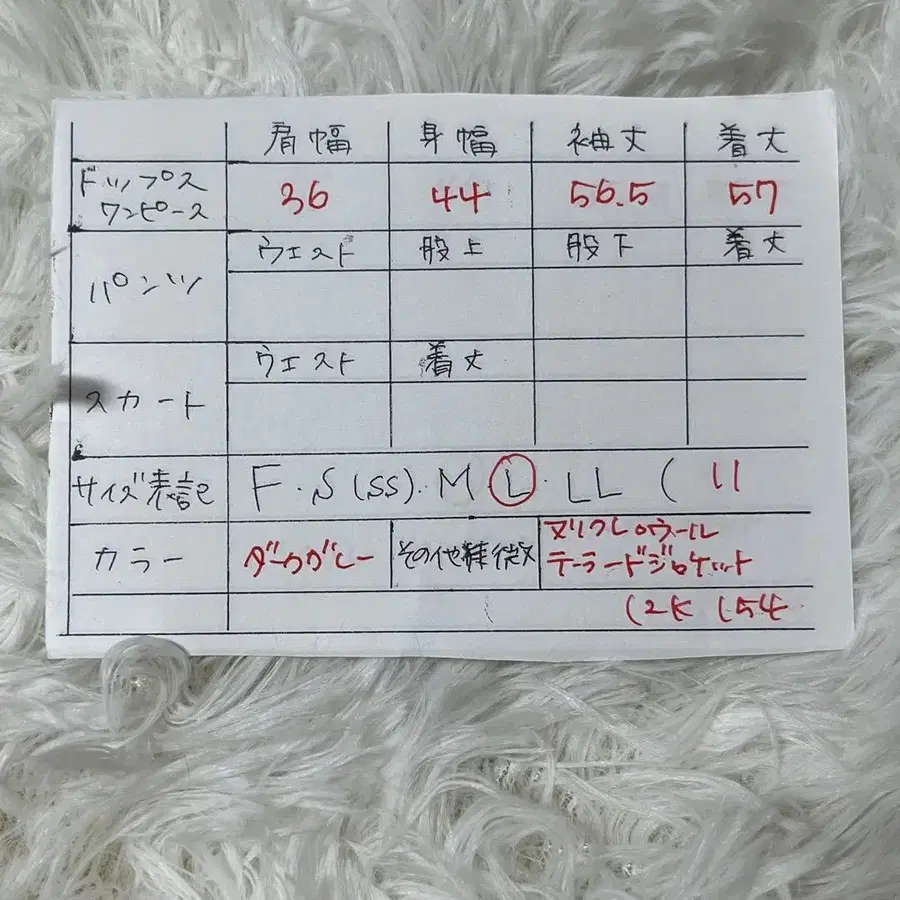 肩幅 身幅 袖丈 着丈
トップス
ワンピース
36 44 56.5 57
パンツ
ウエスト 股上 股下 着丈
スカート
ウエスト 着丈
サイズ表記 F・S(SS)・M L・LL ( 11
カラー ダークグレー その他特徴 メリクレ
ウール
テーラードジャケット
(2K (54